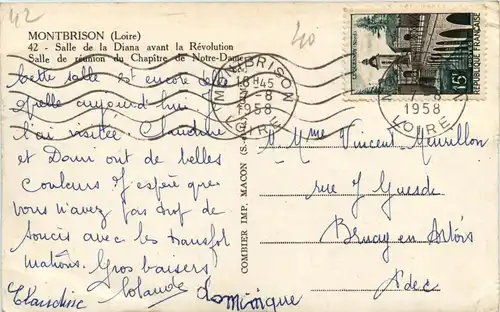 42
40
MONTBRISON (Loire)
42 - Salle de la Diana avant la Révolution
Salle de réunion du Chapître de Notre-Dame
Cette salle est encore plus
belle aujourd'hui
l'ai visitée. Claudine
et Dani ont de belles
couleurs J'espère que
vous n'avez pas trop de
soucis avec les transfor
mations. Gros baisers
Claudine Yolande Dominique
COMBIER IMP. MACON
MONTBRISON
18H45
1958
LOIRE
15F
REPUBLIQUE FRANÇAISE
1958
LOIRE
M. Mme Vincent
rue J Guesde
Bruay en Artois
Pdec